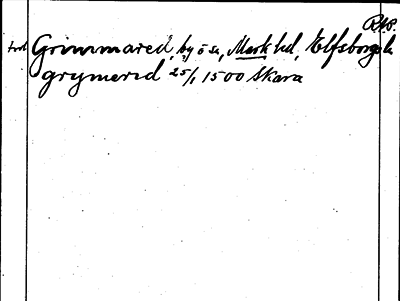 R.A.P.
Grimmared, by ö sn, Mark hd, Elfsborgs l.
grymerid 25/1 1500 Skara